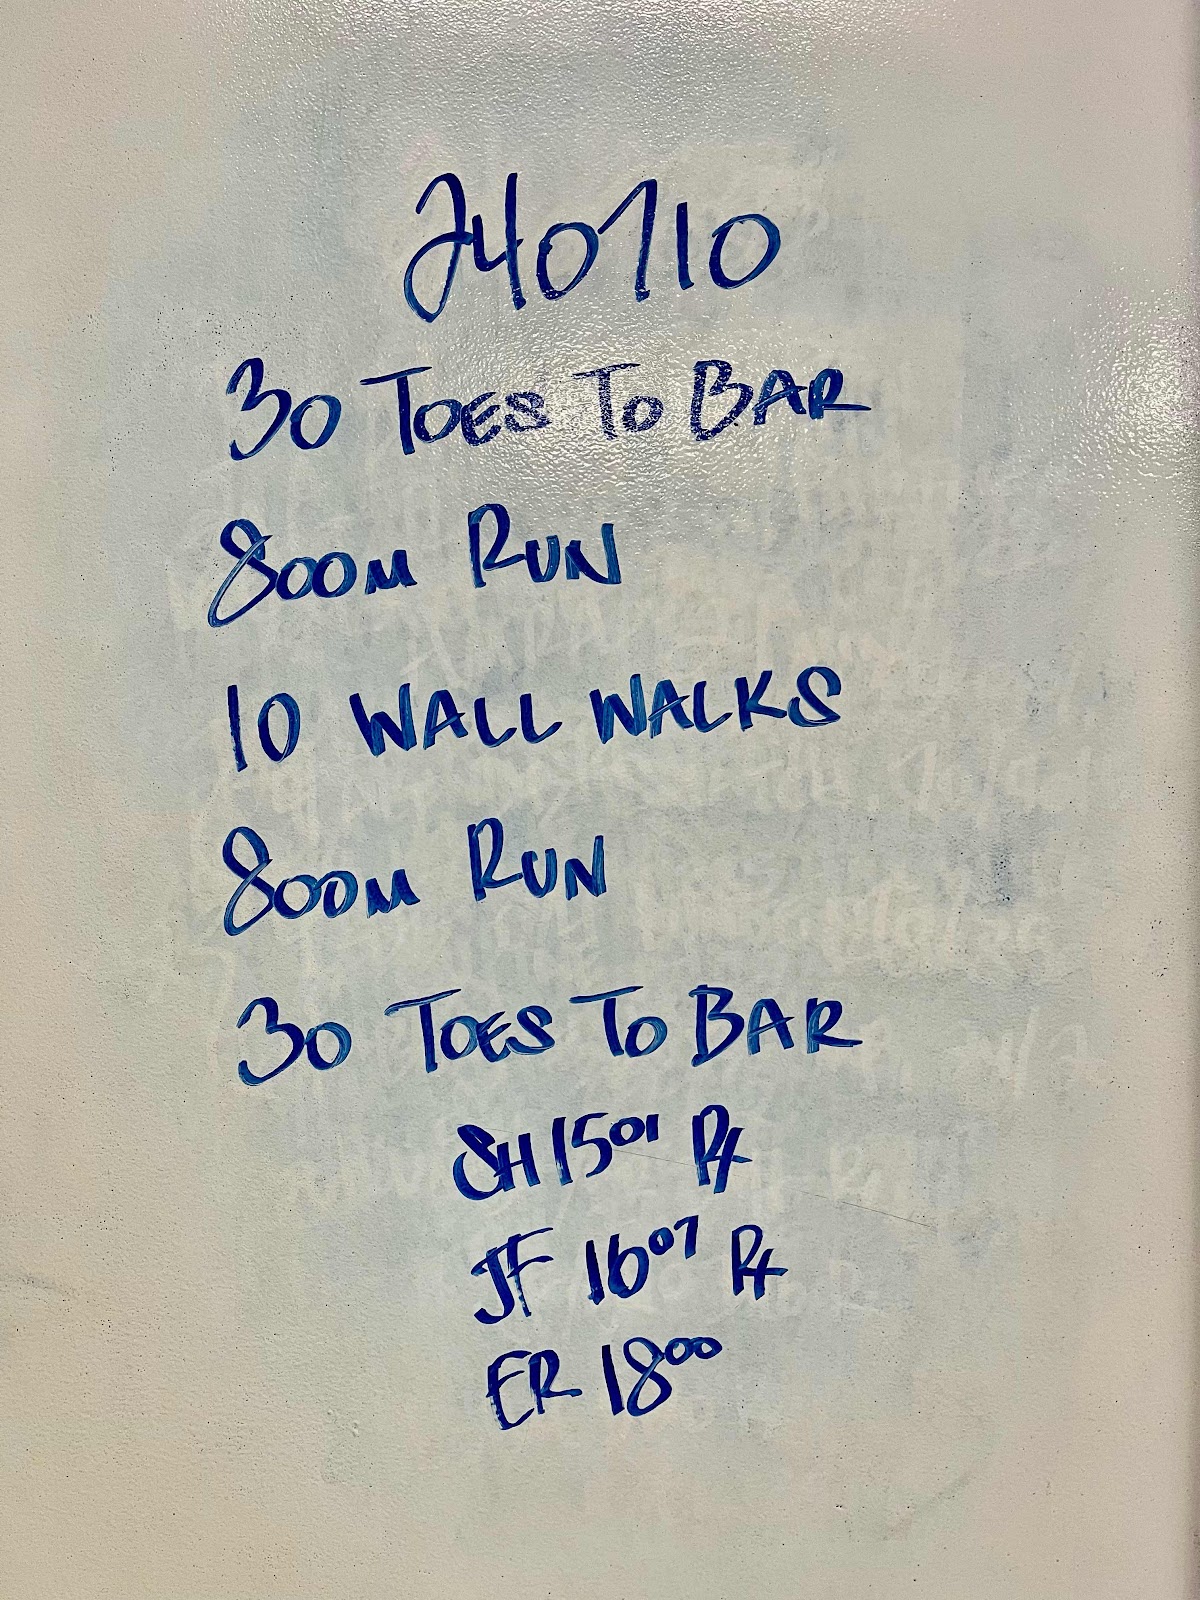 240710
30 TOES TO BAR
800M RUN
10 WALL WALKS
800M RUN
30 TOES TO BAR
SH 15 01 Rx
JF 16 07 Rx
ER 18 00